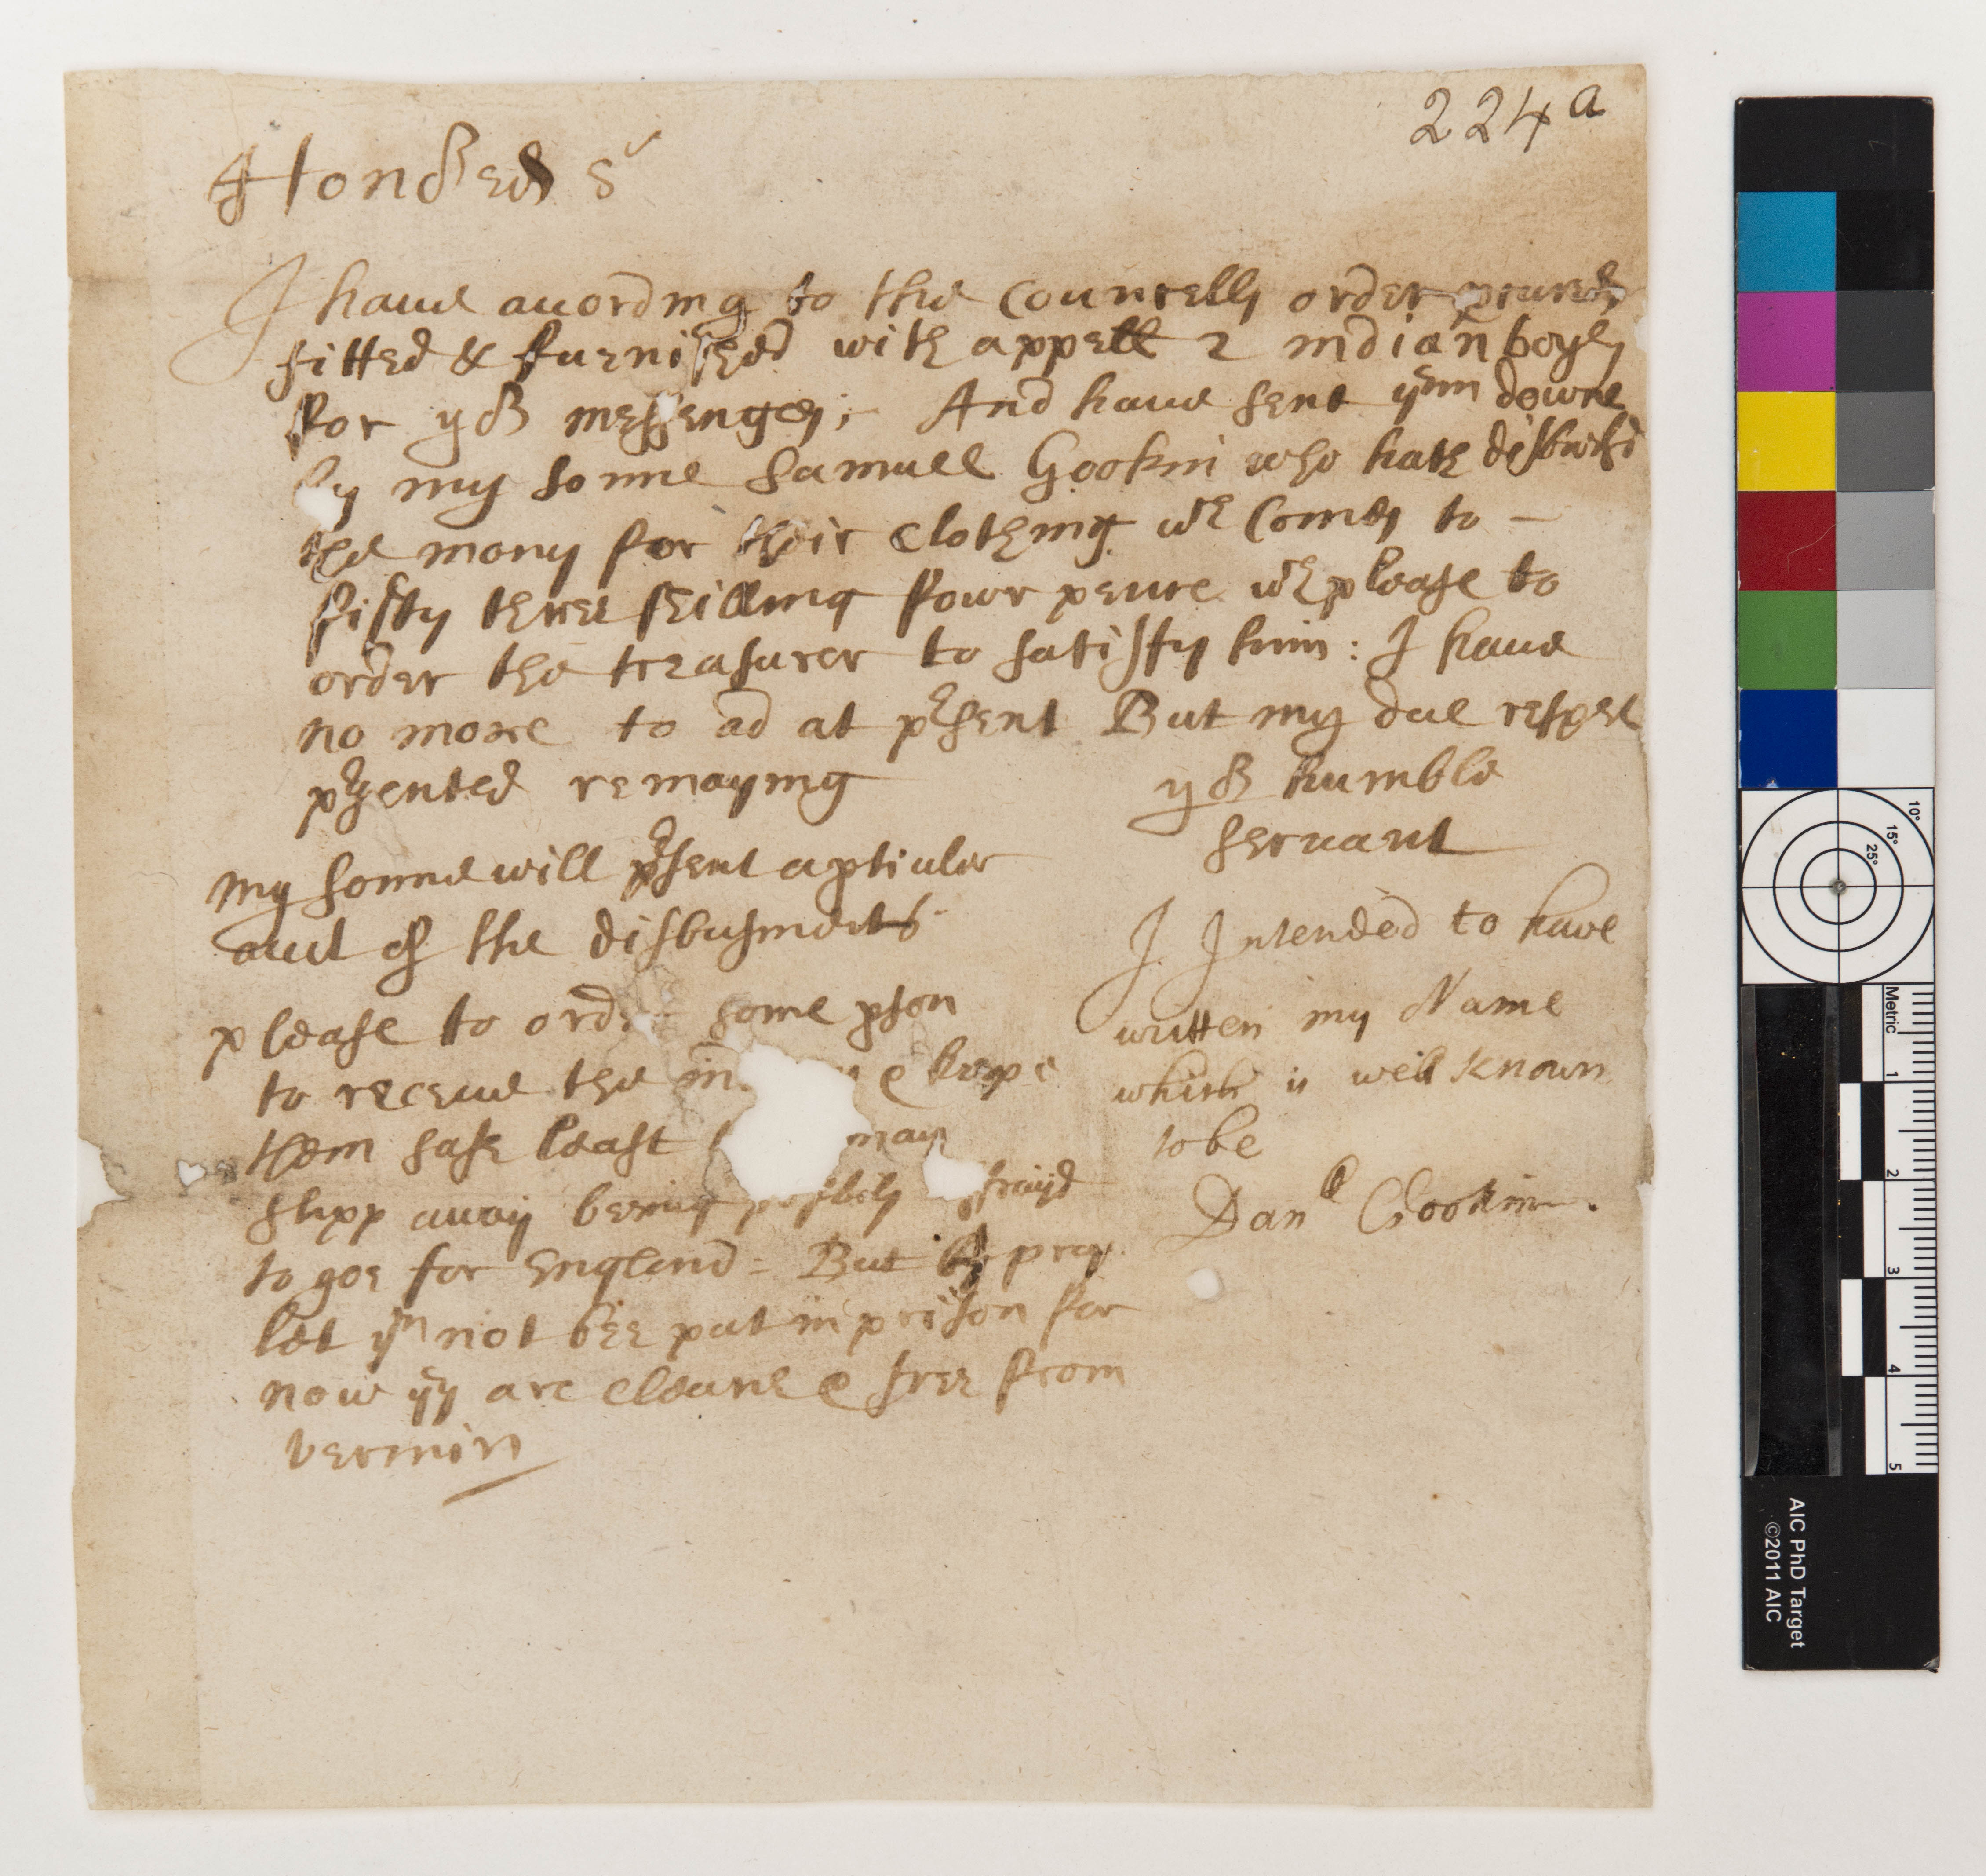 224a
Honored Sr
I haue acording to the Councells order procured
fitted & furnished with appell 2 indian boyes
for yor messenges; And haue sent ym downe
by my sonne Samuell Gookin who hath disbursd
the mony for their clothing wch Comes to -
fifty three shilling fowr pence wch please to
order the treasurer to satisfy him: I haue
no more to ad at prsent But my due respect
prsented remayning
yor humble
seruant
my sonne will prsent a pticuler
acct of the disbusments
please to order some pson
to receiue the in & keepe
them safe least may
slipp away beeing possibly affraijd
to goe for England = But I pray
let ym not bee put in prison for
now yy are cleane & free from
vermin
I Intended to have
written my Name
which is well known
to be
Danl Gookin.
Metric
1
2
3
4
5
10°
15°
25°
AIC PhD Target
©2011 AIC